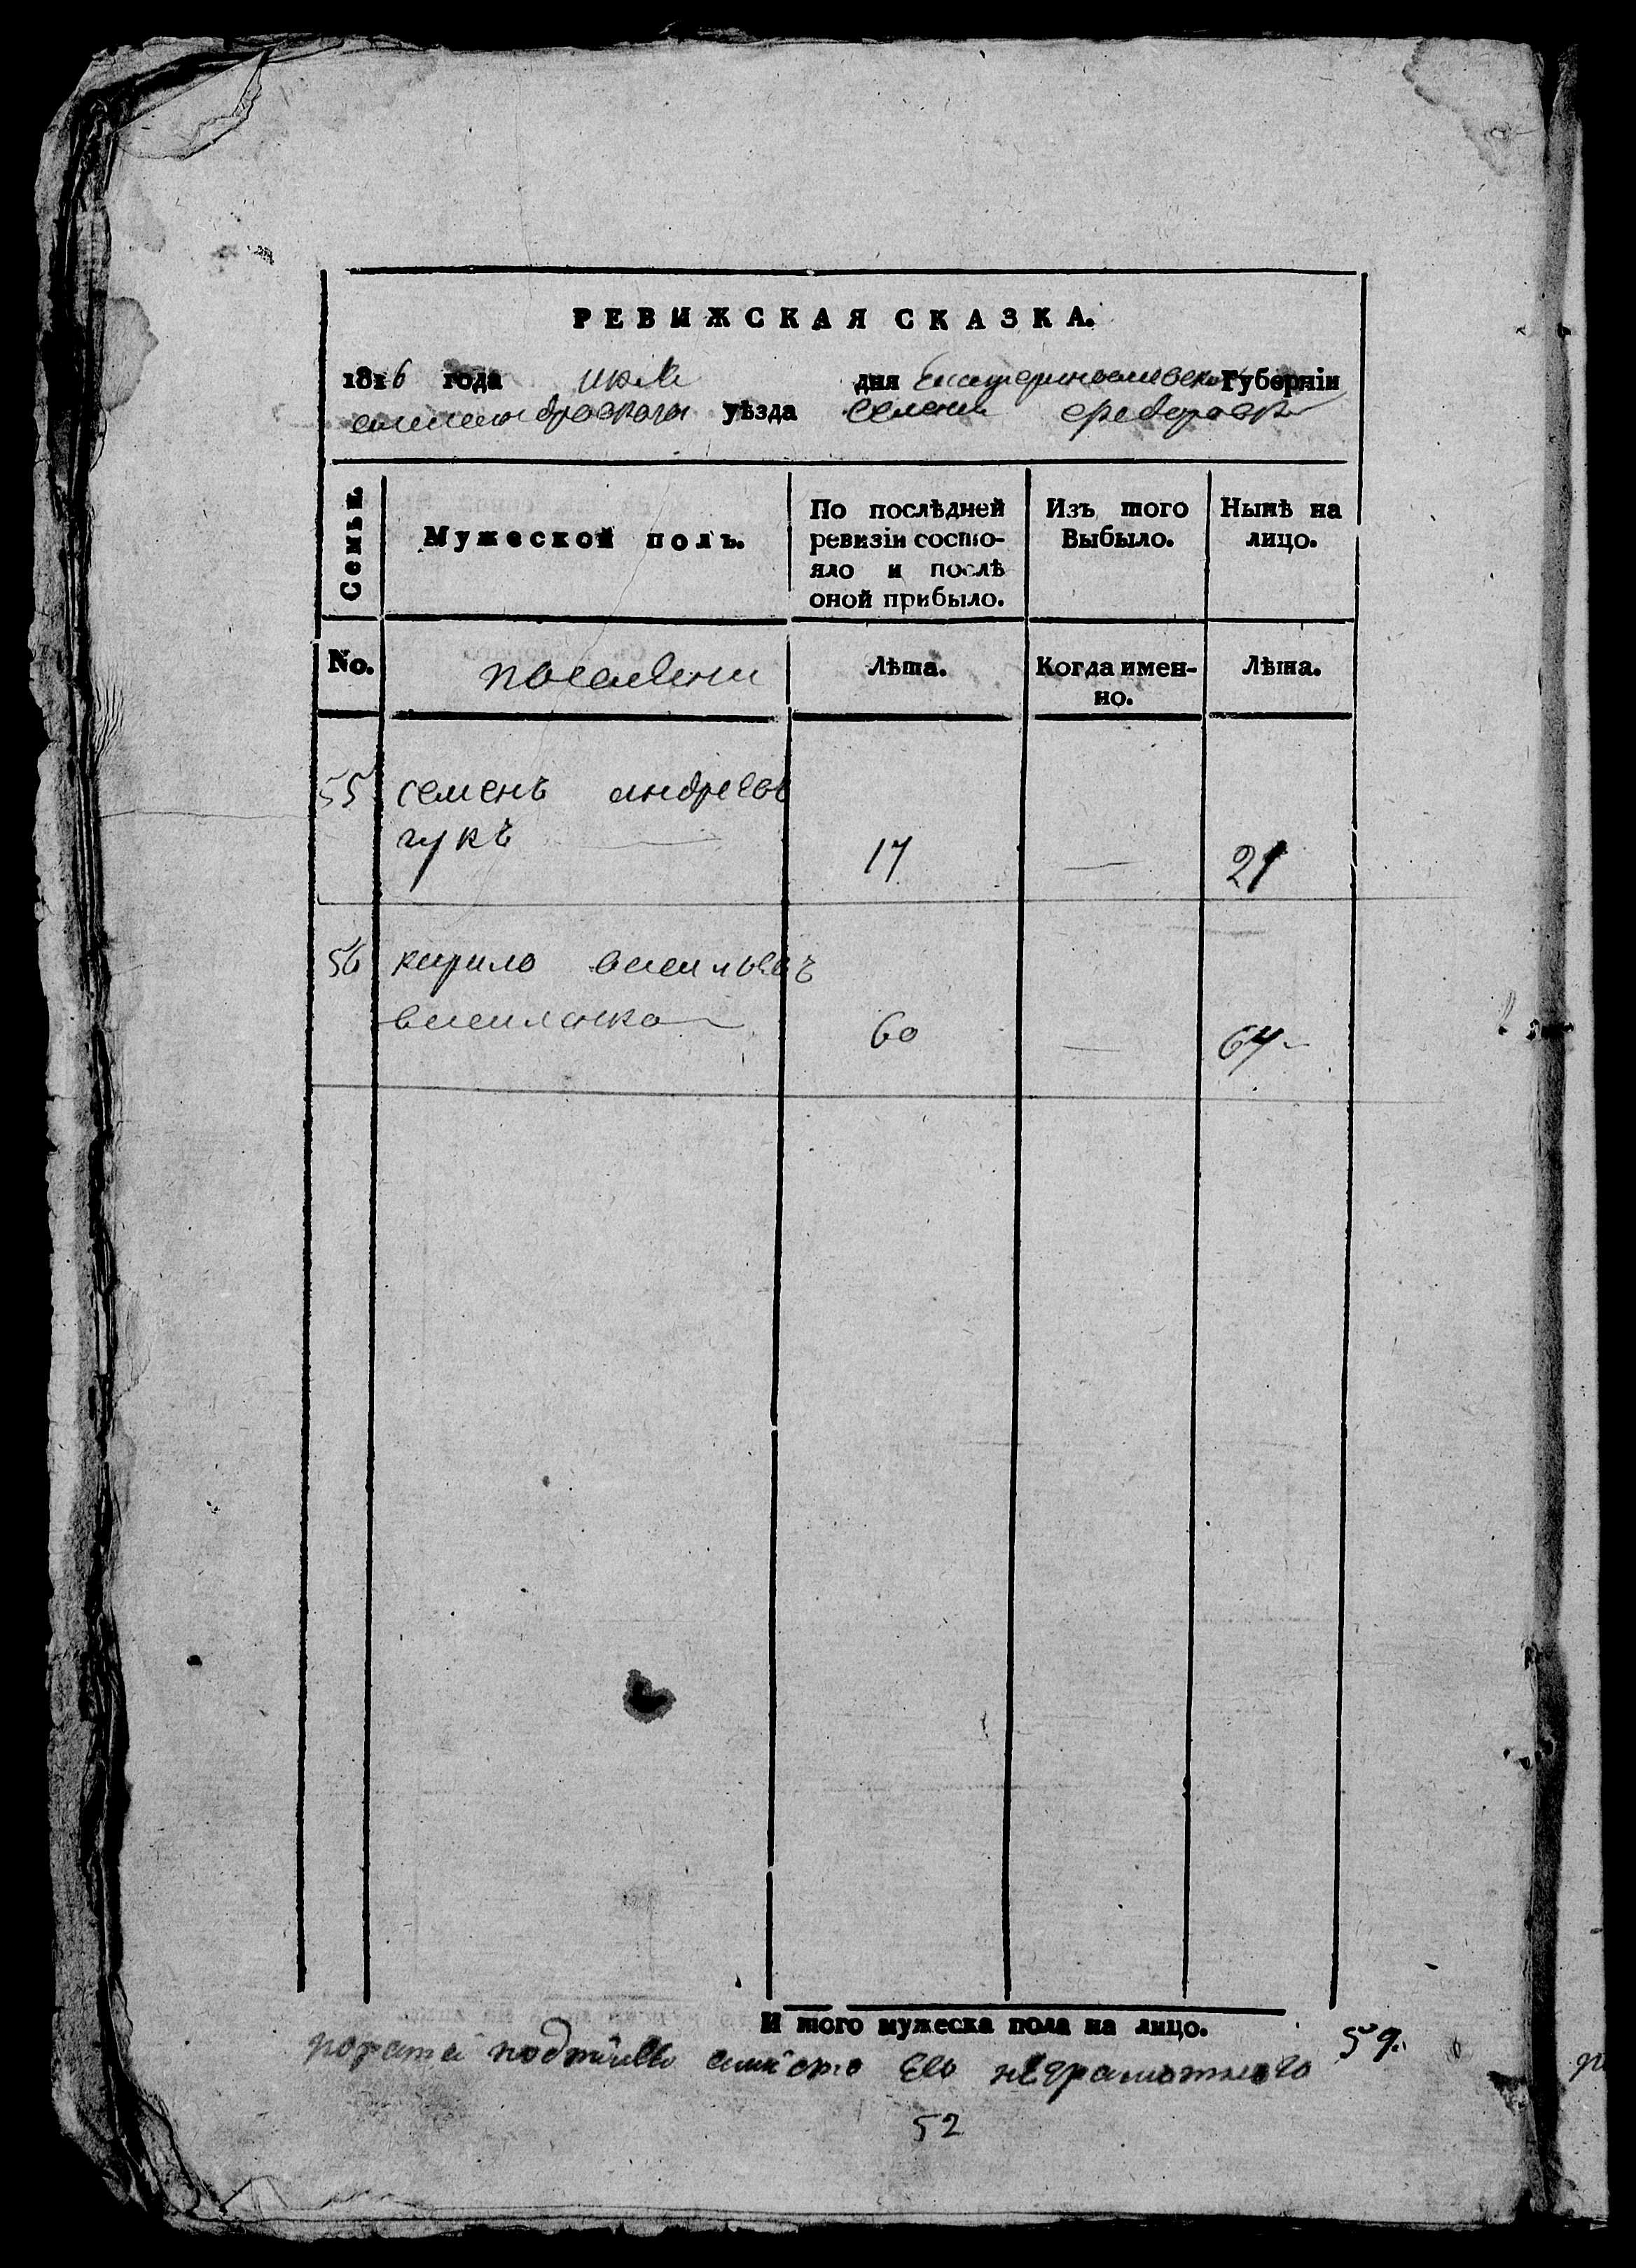 РЕВИЖСКАЯ СКАЗКА.
1816 года июля дня Екатеринославской Губерніи
александровскаго уѣзда селения федоровки
Семьи. Мужеской полъ. По послѣдней ревизіи состояло и послѣ оной прибыло. Изъ того Выбыло. Нынѣ на лицо.
No. Лѣта. Когда именно. Лѣта.
55 семенъ андреевъ
гукъ 17 — 21
56 кирило васильевъ
василенко 60 — 64
И того мужеска пола на лицо. 59.
его неграмотнаго
52